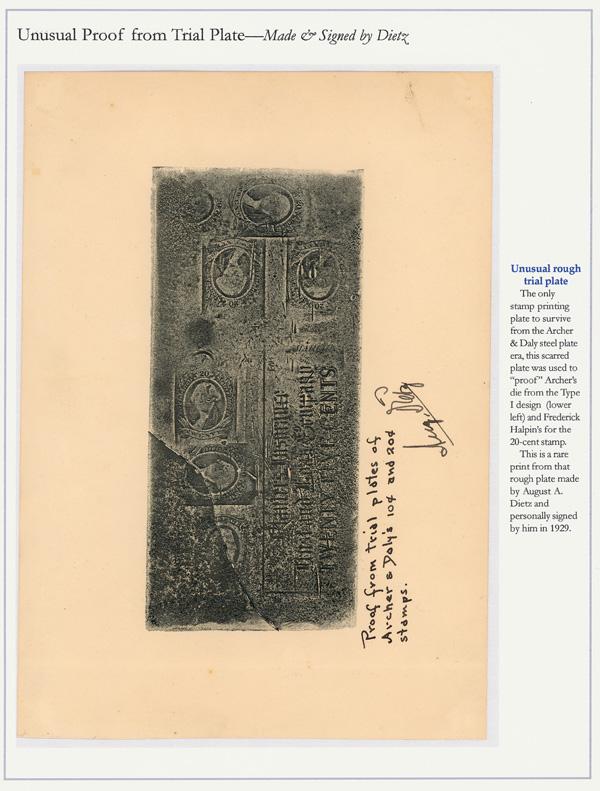 Unusual Proof from Trial Plate—Made & Signed by Dietz
Proof from trial plates of
Archer & Daly's 10¢ and 20¢
stamps.
Aug. Dietz
TWENTY FIVE CENTS
Unusual rough
trial plate
The only
stamp printing
plate to survive
from the Archer
& Daly steel plate
era, this scarred
plate was used to
“proof” Archer’s
die from the Type
I design (lower
left) and Frederick
Halpin’s for the
20-cent stamp.
This is a rare
print from that
rough plate made
by August A.
Dietz and
personally signed
by him in 1929.